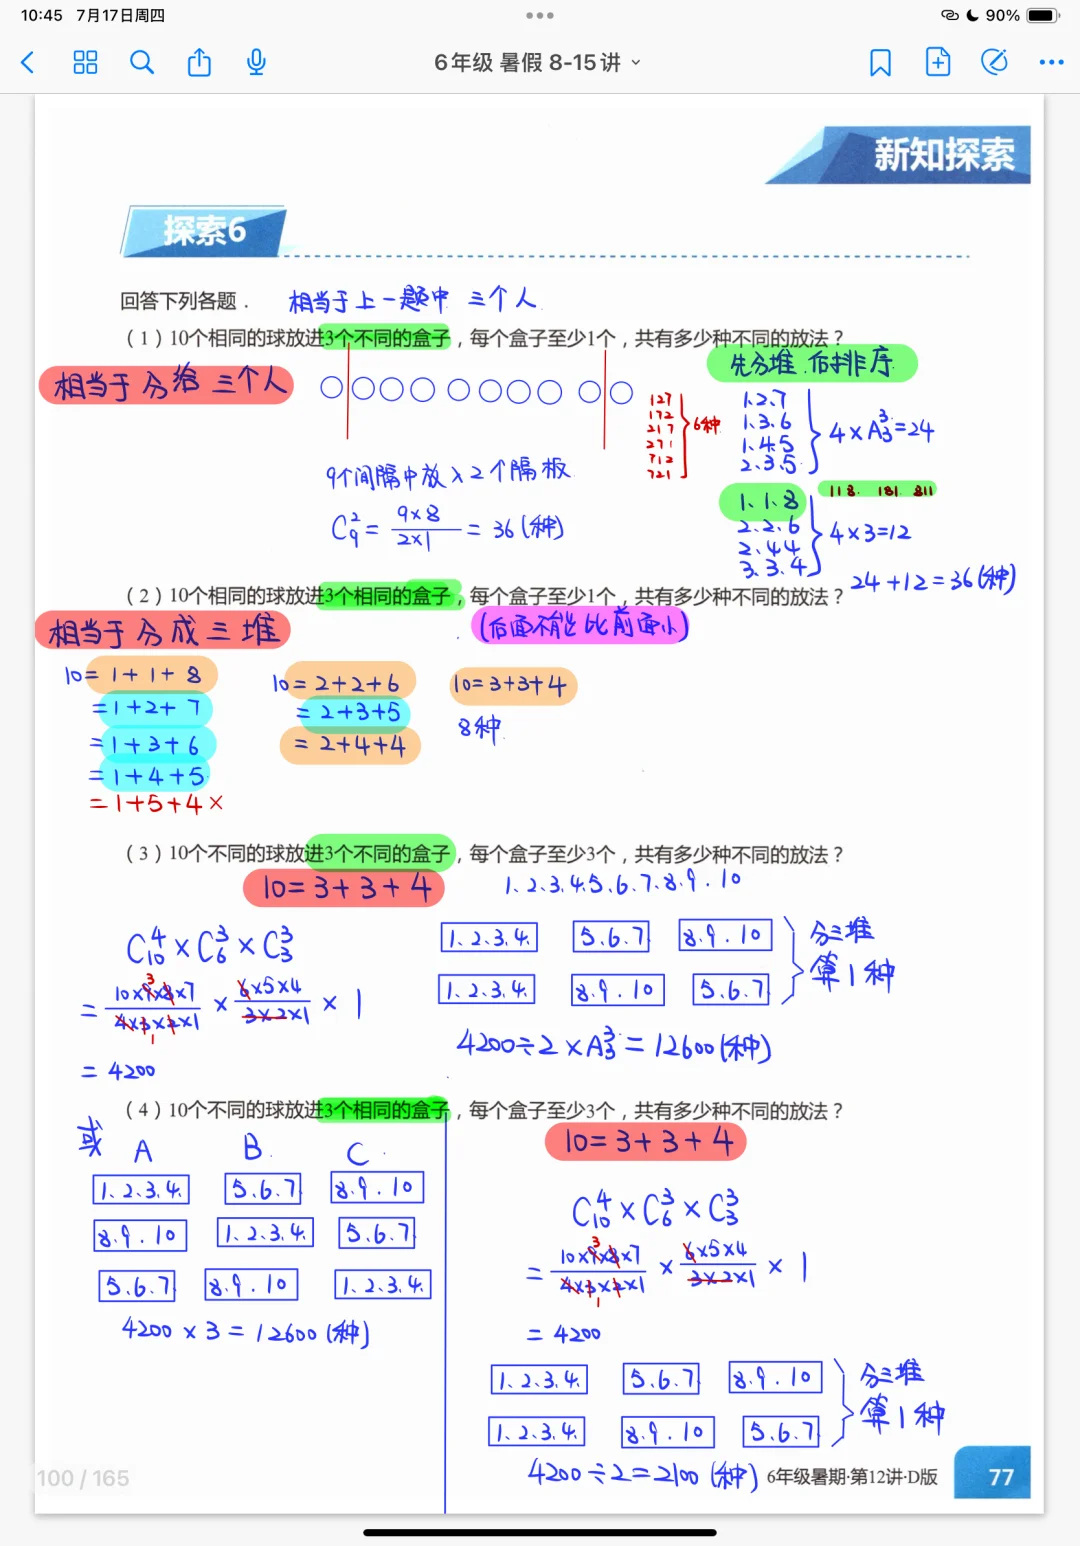 10:45 7月17日周四
90%
6年级 暑假 8-15讲
新知探索
探索6
回答下列各题. 相当于上一题中 三个人
（1）10个相同的球放进3个不同的盒子，每个盒子至少1个，共有多少种不同的放法？
相当于分给三个人
先分堆.后排序
127
172
217
271
712
721
6种
1.2.7
1.3.6
1.4.5
2.3.5
4×A₃³=24
9个间隔中放入2个隔板
C₉²=9×8/2×1=36(种)
1.1.8
2.2.6
2.4.4
3.3.4
118. 181. 811
4×3=12
24+12=36(种)
（2）10个相同的球放进3个相同的盒子，每个盒子至少1个，共有多少种不同的放法？
相当于分成三堆
(后面不能比前面小)
10=1+1+8
=1+2+7
=1+3+6
=1+4+5
=1+5+4×
10=2+2+6
=2+3+5
=2+4+4
10=3+3+4
8种
（3）10个不同的球放进3个不同的盒子，每个盒子至少3个，共有多少种不同的放法？
10=3+3+4
1.2.3.4.5.6.7.8.9.10
C₁₀⁴×C₆³×C₃³
=10×9×8×7/4×3×2×1×6×5×4/3×2×1×1
3
1
=4200
1.2.3.4. 5.6.7 8.9.10
1.2.3.4. 8.9.10 5.6.7
分三堆
算1种
4200÷2×A₃³=12600(种)
（4）10个不同的球放进3个相同的盒子，每个盒子至少3个，共有多少种不同的放法？
或 A B. C.
1.2.3.4. 5.6.7 8.9.10
8.9.10 1.2.3.4. 5.6.7
5.6.7 8.9.10 1.2.3.4.
4200×3=12600(种)
10=3+3+4
C₁₀⁴×C₆³×C₃³
=10×9×8×7/4×3×2×1×6×5×4/3×2×1×1
3
1
=4200
1.2.3.4. 5.6.7 8.9.10
1.2.3.4. 8.9.10 5.6.7
分三堆
算1种
4200÷2=2100(种)
100 / 165
6年级暑期·第12讲·D版
77